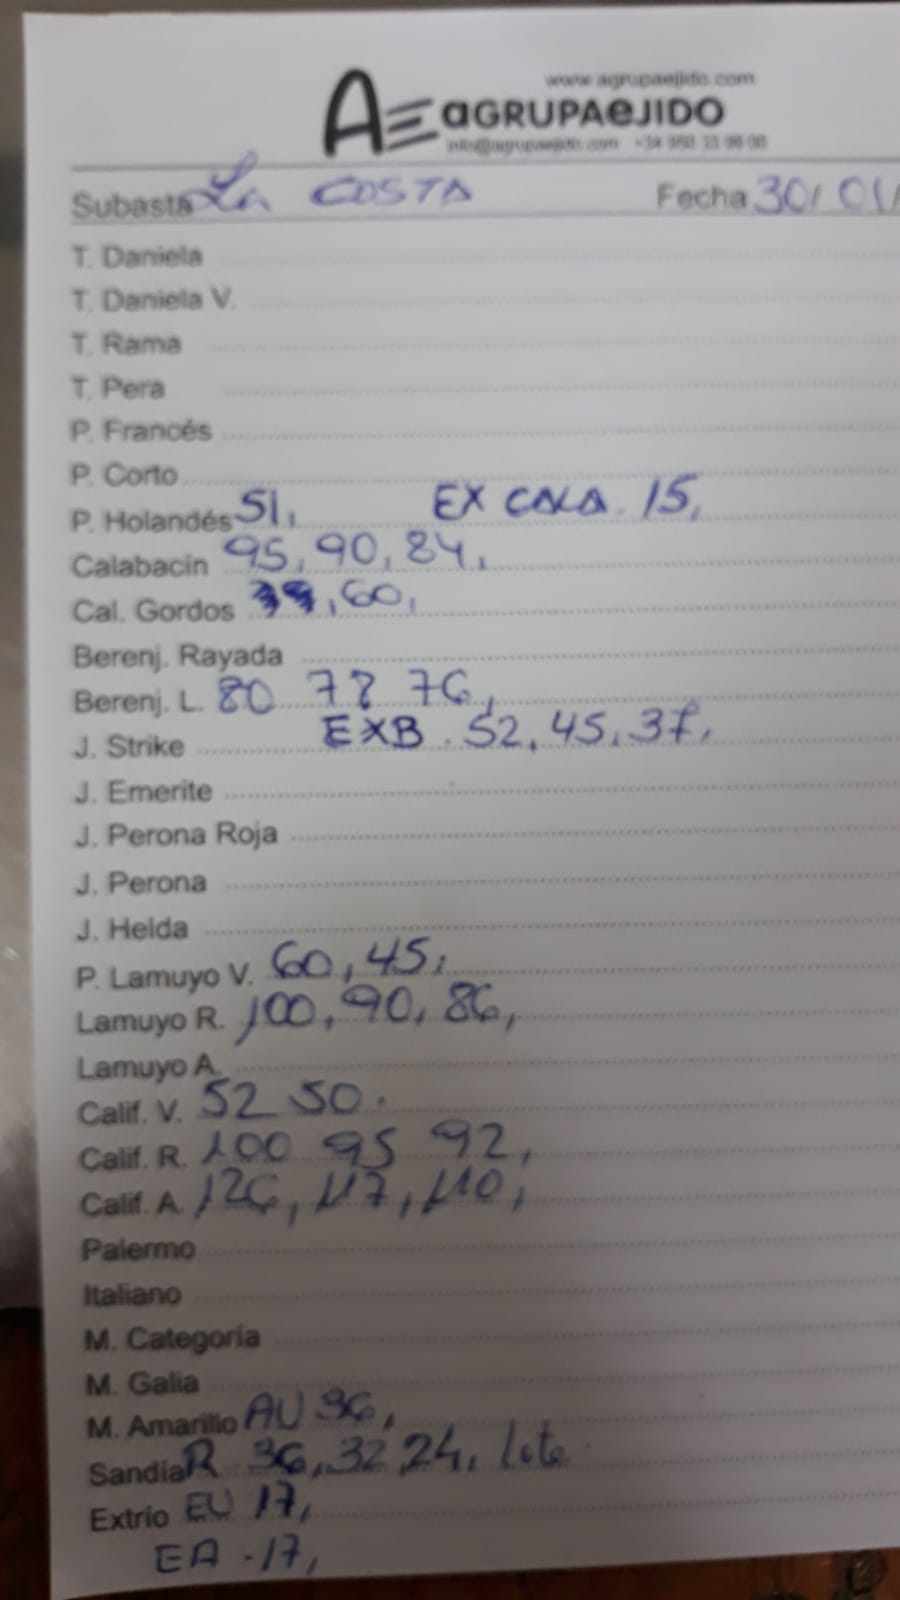 www.agrupaejido.com
AE aGRUPAeJIDO
info@agrupaejido.com
Subasta La COSTA Fecha 30/01/
T. Daniela
T. Daniela V.
T. Rama
T. Pera
P. Francés
P. Corto
P. Holandés 51, EX CALA. 15,
Calabacín 95, 90, 84,
Cal. Gordos , 60,
Berenj. Rayada
Berenj. L. 80 78 76,
J. Strike EXB. 52, 45, 37,
J. Emerite
J. Perona Roja
J. Perona
J. Helda
P. Lamuyo V. 60, 45,
Lamuyo R. 100, 90, 86,
Lamuyo A.
Calif. V. 52 50.
Calif. R. 100 95 92,
Calif. A. 126, 117, 110,
Palermo
Italiano
M. Categoría
M. Galia
M. Amarillo AU 36,
Sandía R 36, 32, 24, lote
Extrio EU 17,
EA - 17,